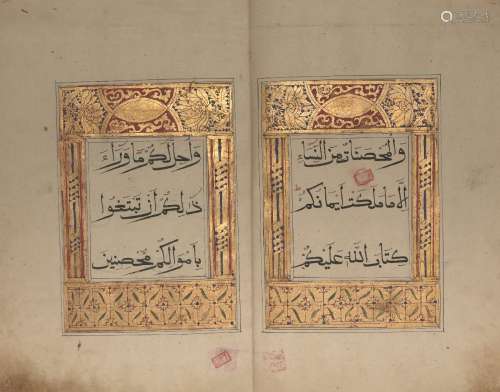 والمحصنات من النساء
الا ما ملكت ايمانكم
كتاب الله عليكم
واحل لكم ما وراء
ذلكم ان تبتغوا
باموالكم محصنين